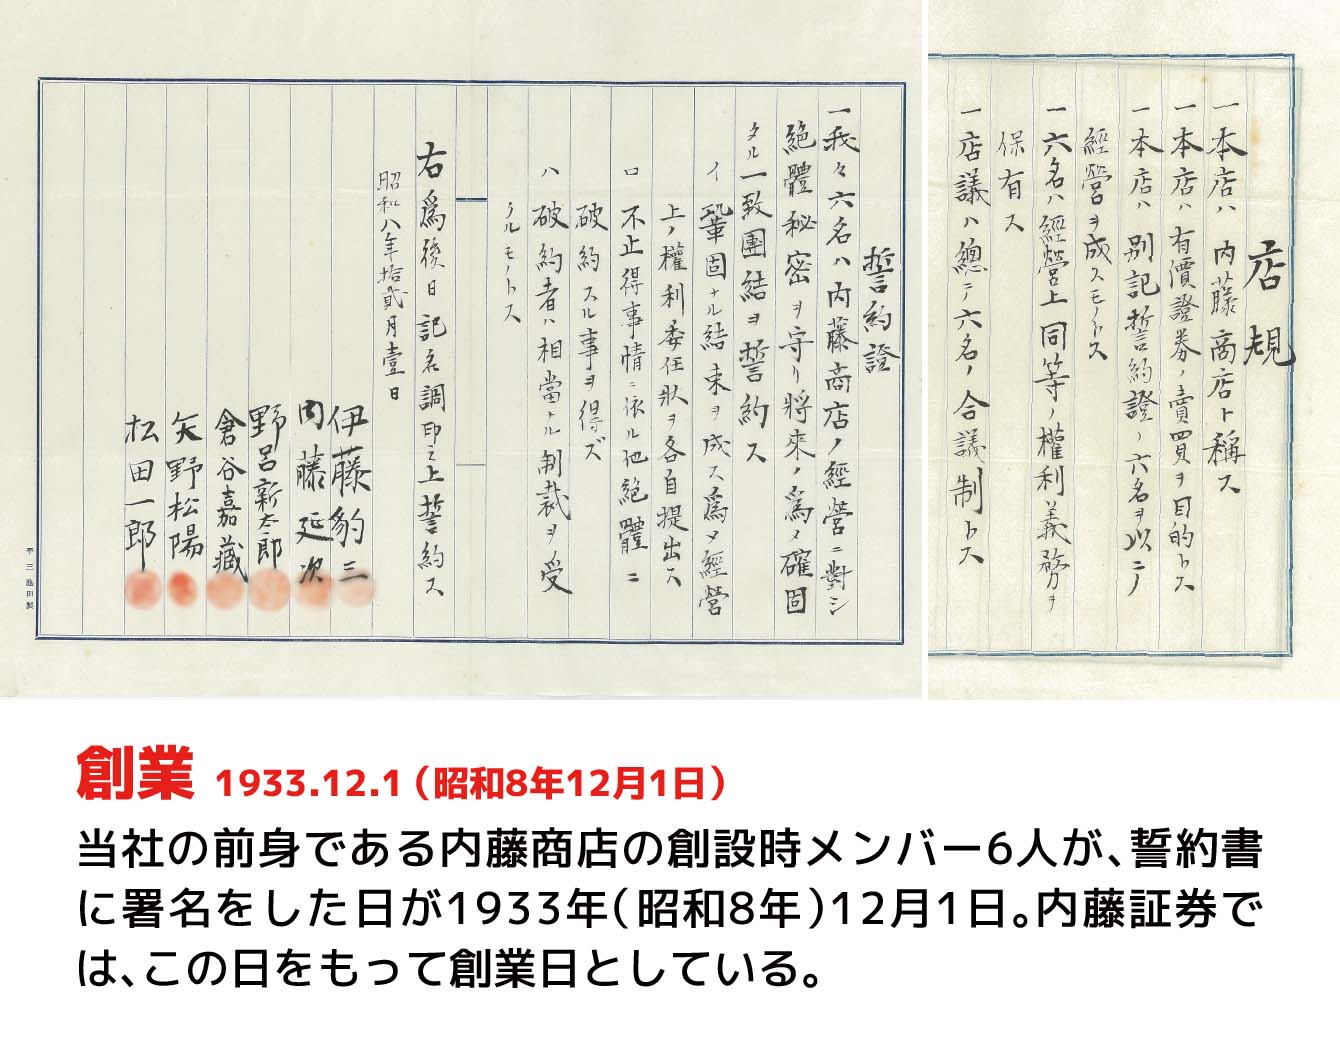 店規
一本店ハ内藤商店ト稱ス
一本店ハ有價證券ノ賣買ヲ目的トス
一本店ハ別記誓約證ノ六名ヲ以ニノ
經營ヲ成スモノトス
一六名ハ經營上同等ノ權利義務ヲ
保有ス
一店議ハ總テ六名ノ合議制トス
誓約證
一我々六名ハ内藤商店ノ經營ニ對シ
絶體秘密ヲ守リ將來ノ爲メ確固
タル一致團結ヲ誓約ス
イ 鞏固ナル結束ヲ成ス爲メ經營
上ノ權利委任狀ヲ各自提出ス
ロ 不止得事情ニ依ル他絶體ニ
破約スル事ヲ得ズ
ハ 破約者ハ相當ナル制裁ヲ受
クルモノトス
右爲後日記名調印之上誓約ス
昭和八年拾貳月壹日
伊藤豹三
内藤延次
野呂新太郎
倉谷嘉藏
矢野松陽
松田一郎
創業 1933.12.1（昭和8年12月1日）
当社の前身である内藤商店の創設時メンバー6人が、誓約書
に署名をした日が1933年（昭和8年）12月1日。内藤証券で
は、この日をもって創業日としている。